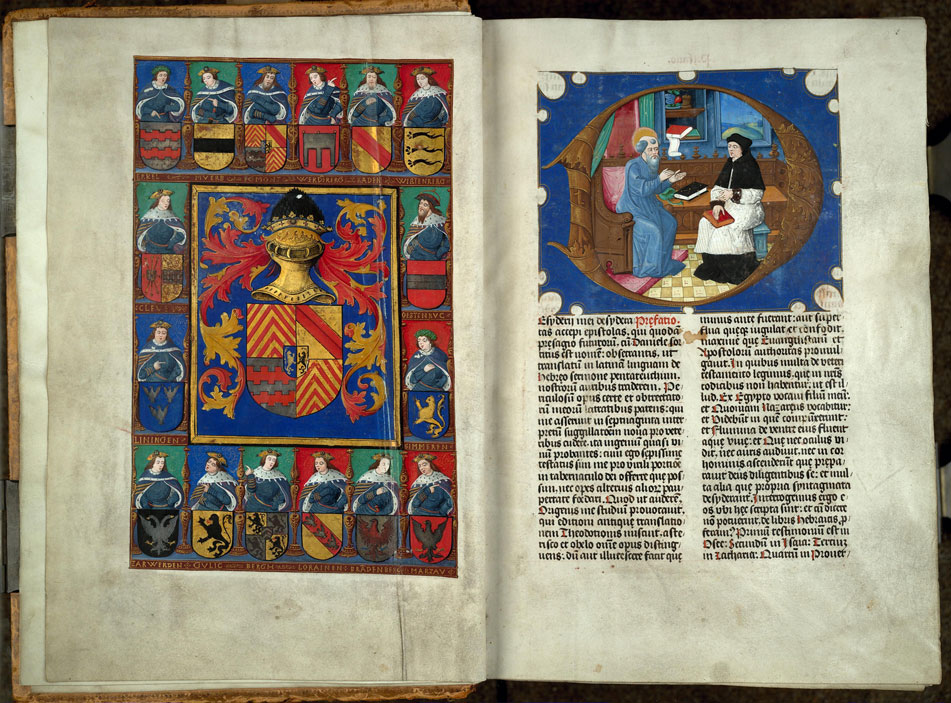 BADEN WIRTENBERG
LININGEN
SIMMEREN
ARWERDEN GVLIC BERGH LORAINEN BRADENBERG
Esyderij mei desydera Prefatio
tas accepi epistolas, qui quodā
presagio futurorū, cū Daniele sor
titus est nomē: obsecrantis, ut
translatū in latinā linguam de
Hebreo sermone pentateuchum,
nostrorū auribus traderem. Pe
riculosū opus certe et obtrectato
rū meorū latratibus patens: qui
me asserunt in septuaginta inter
pretū suggillationē noua pro vete
ribus cudere. ita ingeniū quasi vi
nū probantes: cum ego sepissime
testatus sim me pro virili portiōe
in tabernaculo dei offerre que pos
sum, nec opes alterius aliorū pau
pertate fœdari. Quod ut auderē,
Origenis me studiū prouocauit,
qui editioni antique translatio
nem Theodotionis miscuit. aste
risco et obelo omne opus disting
uens: dū aut illucescere facit que
minus ante fuerant: aut super
flua queque iugulat et confodit.
maxime que Euangelistarū et
Apostolorū authoritas promul
gauit. In quibus multa de veteri
testamento legimus, que in nr̄is
codicibus non habentur. ut est il
lud. Ex Egypto vocaui filiū meū:
et Quoniam Nazareus vocabitur:
et Videbūt in quē compūxerunt:
et Flumina de ventre eius fluent
aque viue: et Que nec oculus vi-
dit, nec auris audiuit, nec in cor
hominis ascenderūt que prepa
rauit deus diligentibus se: et mul
ta alia que propriū syntagmata
desyderant. Interrogemus ergo e
os vbi hec scripta sunt: et cū dicere
nō potuerint, de libris hebraicis, p
feram? Primū testimoniū est in
Osee: Secundū in Isaia: Tertiū
in Zacharia: Quartū in Prouer